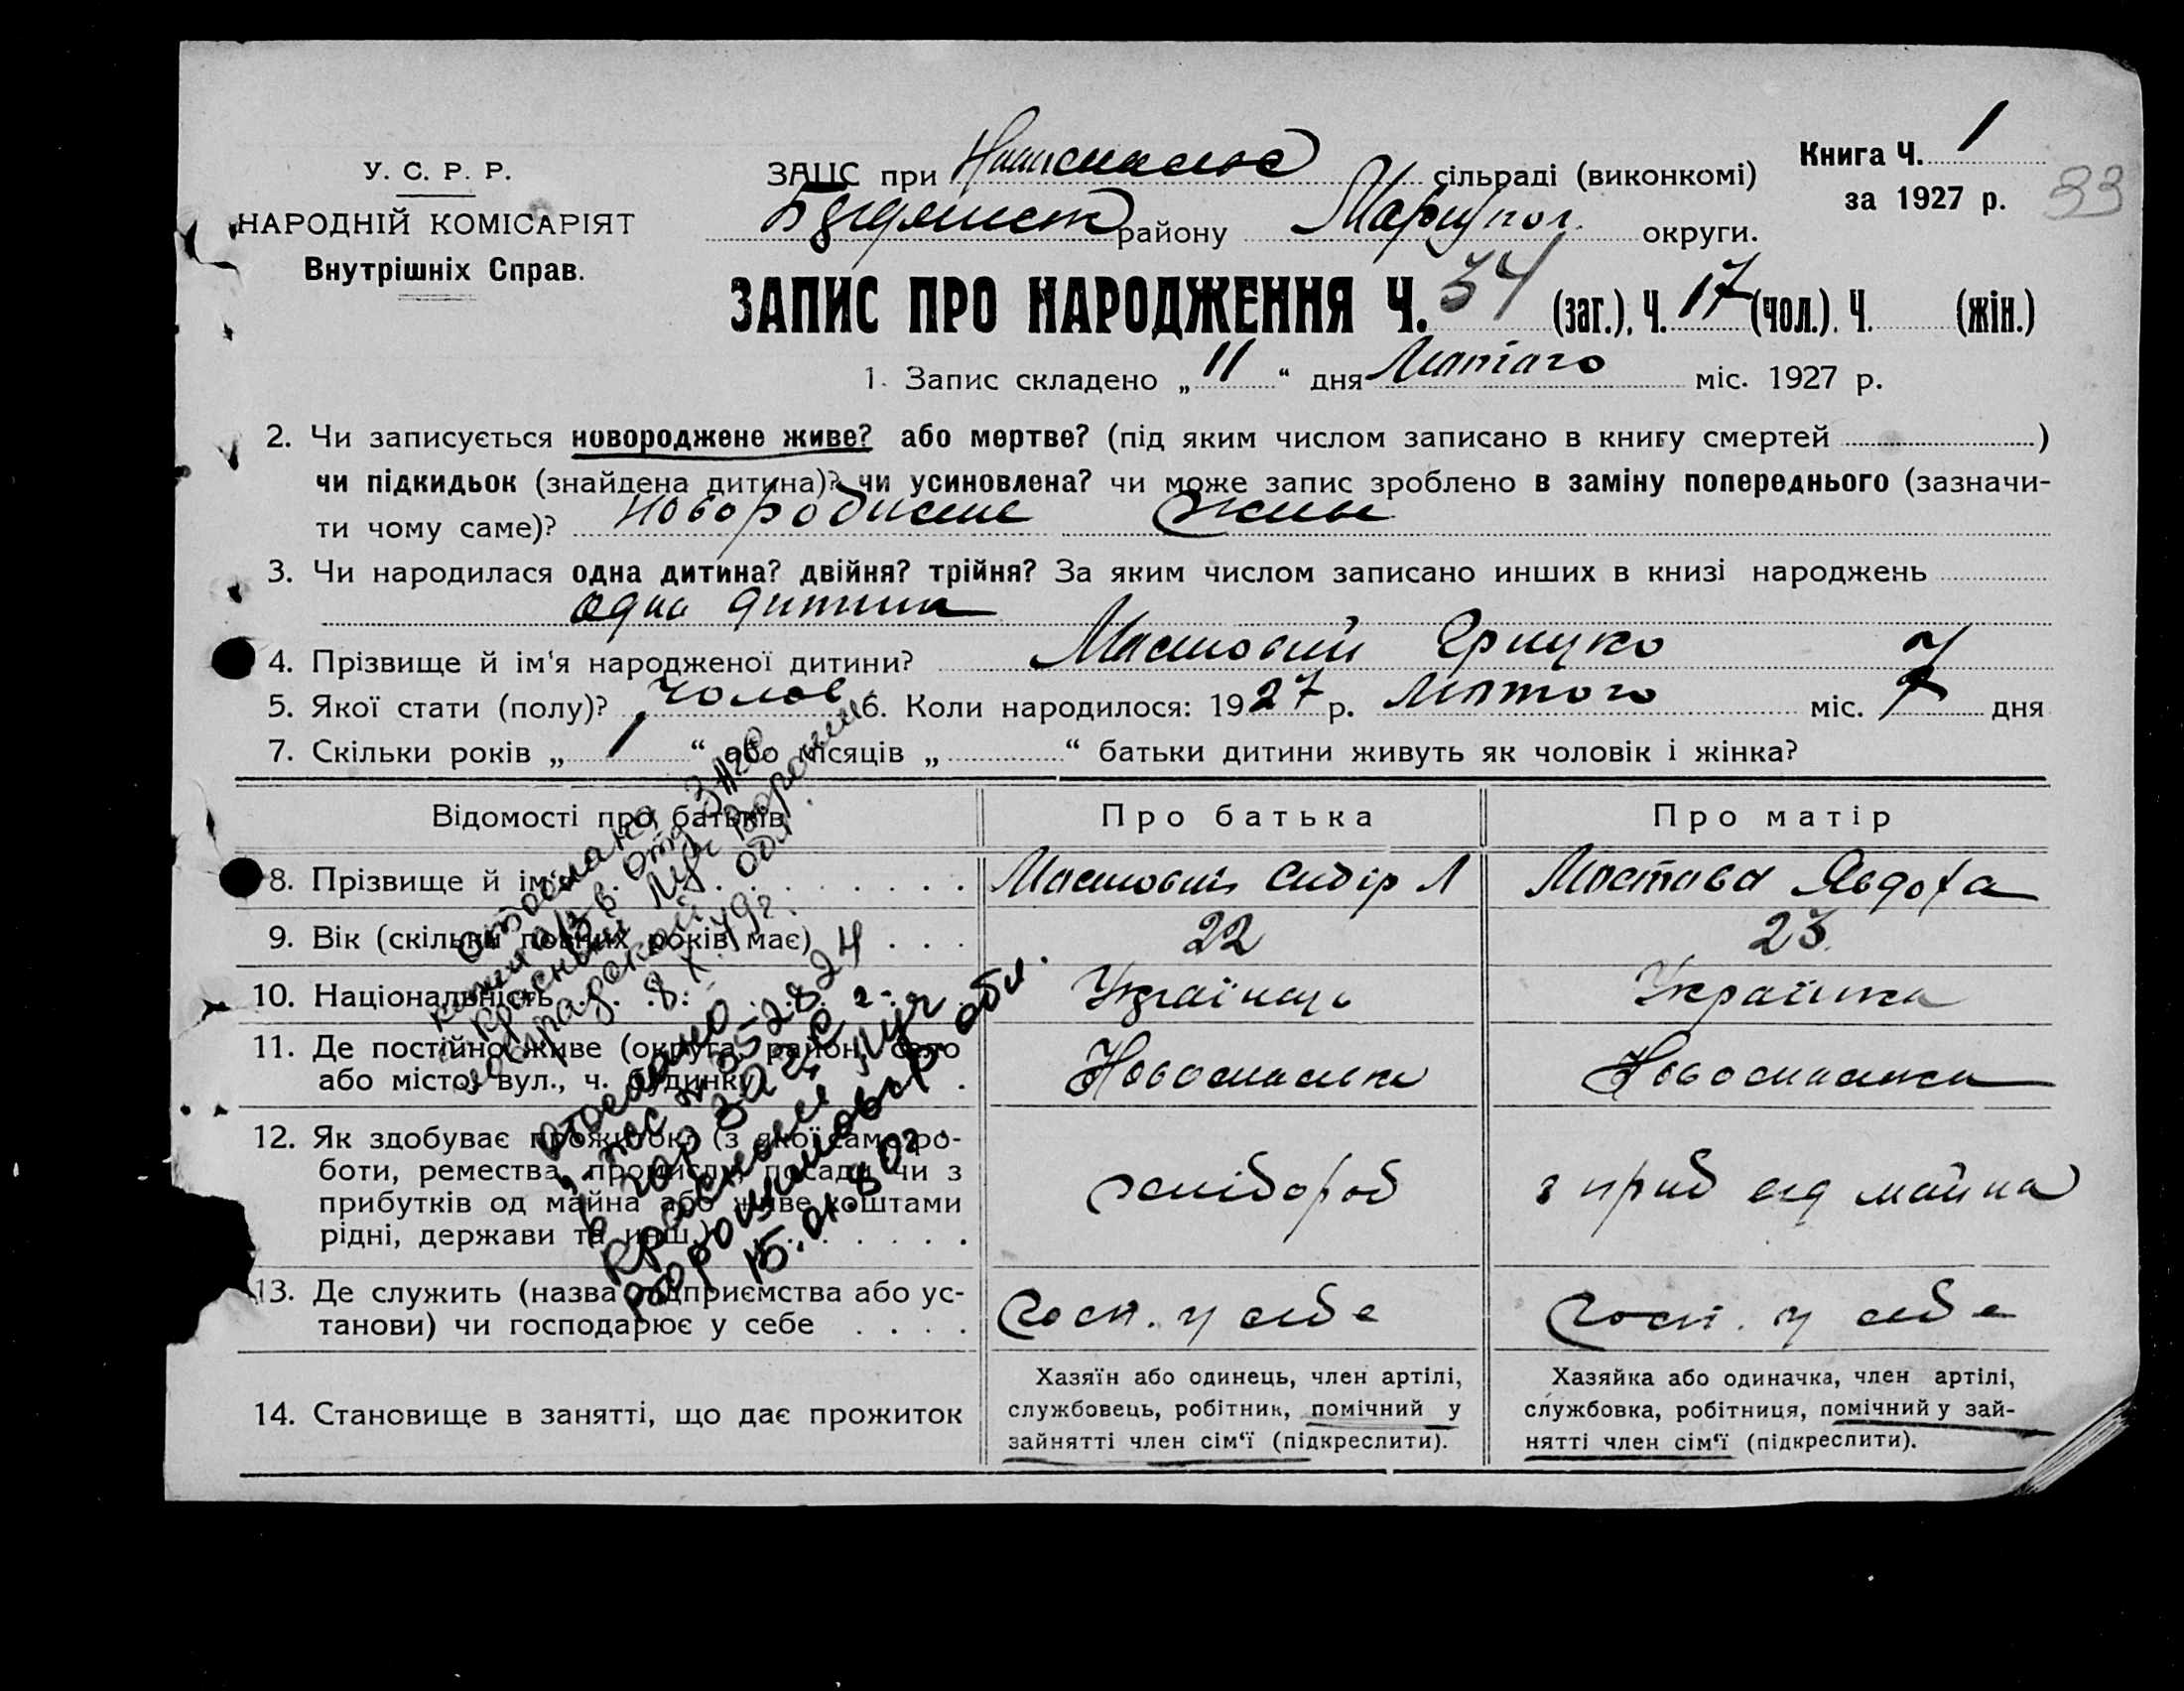 У. С. Р. Р.
НАРОДНІЙ КОМІСАРІЯТ
Внутрішніх Справ.
ЗАЦС при сільраді (виконкомі)
району Маріупол. округи.
Книга Ч. 1
за 1927 р.
33
ЗАПИС ПРО НАРОДЖЕННЯ Ч. 34 (заг.), Ч. 17 (чол.). Ч. (жін.)
1. Запис складено „ 11 “ дня Лютаго міс. 1927 р.
2. Чи записується новороджене живе? або мертве? (під яким числом записано в книгу смертей )
чи підкидьок (знайдена дитина)? чи усиновлена? чи може запис зроблено в заміну попереднього (зазначи-
ти чому саме)?
3. Чи народилася одна дитина? двійня? трійня? За яким числом записано инших в книзі народжень
одна дитина
4. Прізвище й ім‘я народженої дитини? Мастовий Грицко
5. Якої стати (полу)? чолов 6. Коли народилося: 1927 р. Лютого міс. 7 дня
7. Скільки років „ 1 “ або місяців „ “ батьки дитини живуть як чоловік і жінка?
Відомості про батьків Про батька Про матір
8. Прізвище й ім‘я Мастовий Сидір Л Мастова Явдоха
9. Вік (скільки повних років має) 22 23
10. Національність Українец Українка
11. Де постійно живе (округа, район, село
або місто, вул., ч. будинку Новоспаська Новоспаська
12. Як здобуває прожиток (з якої саме ро-
боти, ремества, промислу, посади чи з
прибутків од майна або живе коштами
рідні, держави та инш.) хлібороб з приб від майна
13. Де служить (назва підприємства або ус-
танови) чи господарює у себе Госп. у себе Госп. у себе
14. Становище в занятті, що дає прожиток
Хазяїн або одинець, член артілі,
службовець, робітник, помічний у
зайнятті член сім‘ї (підкреслити).
Хазяйка або одиначка, член артілі,
службовка, робітниця, помічний у зай-
нятті член сім‘ї (підкреслити).
8.X.49г.
в гор ЗАГС г.
Красный Луч
Ворошиловгр. обл.